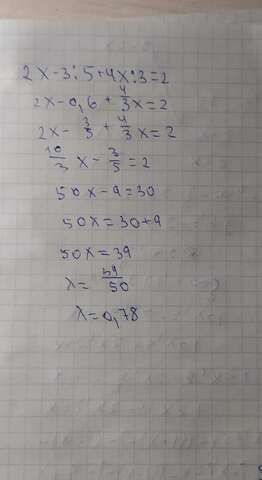 2x-3:5+4x:3=2
2x-0,6+4/3x=2
2x-3/5+4/3x=2
10/3x-3/5=2
50x-9=30
50x=30+9
50x=39
x=39/50
x=0,78